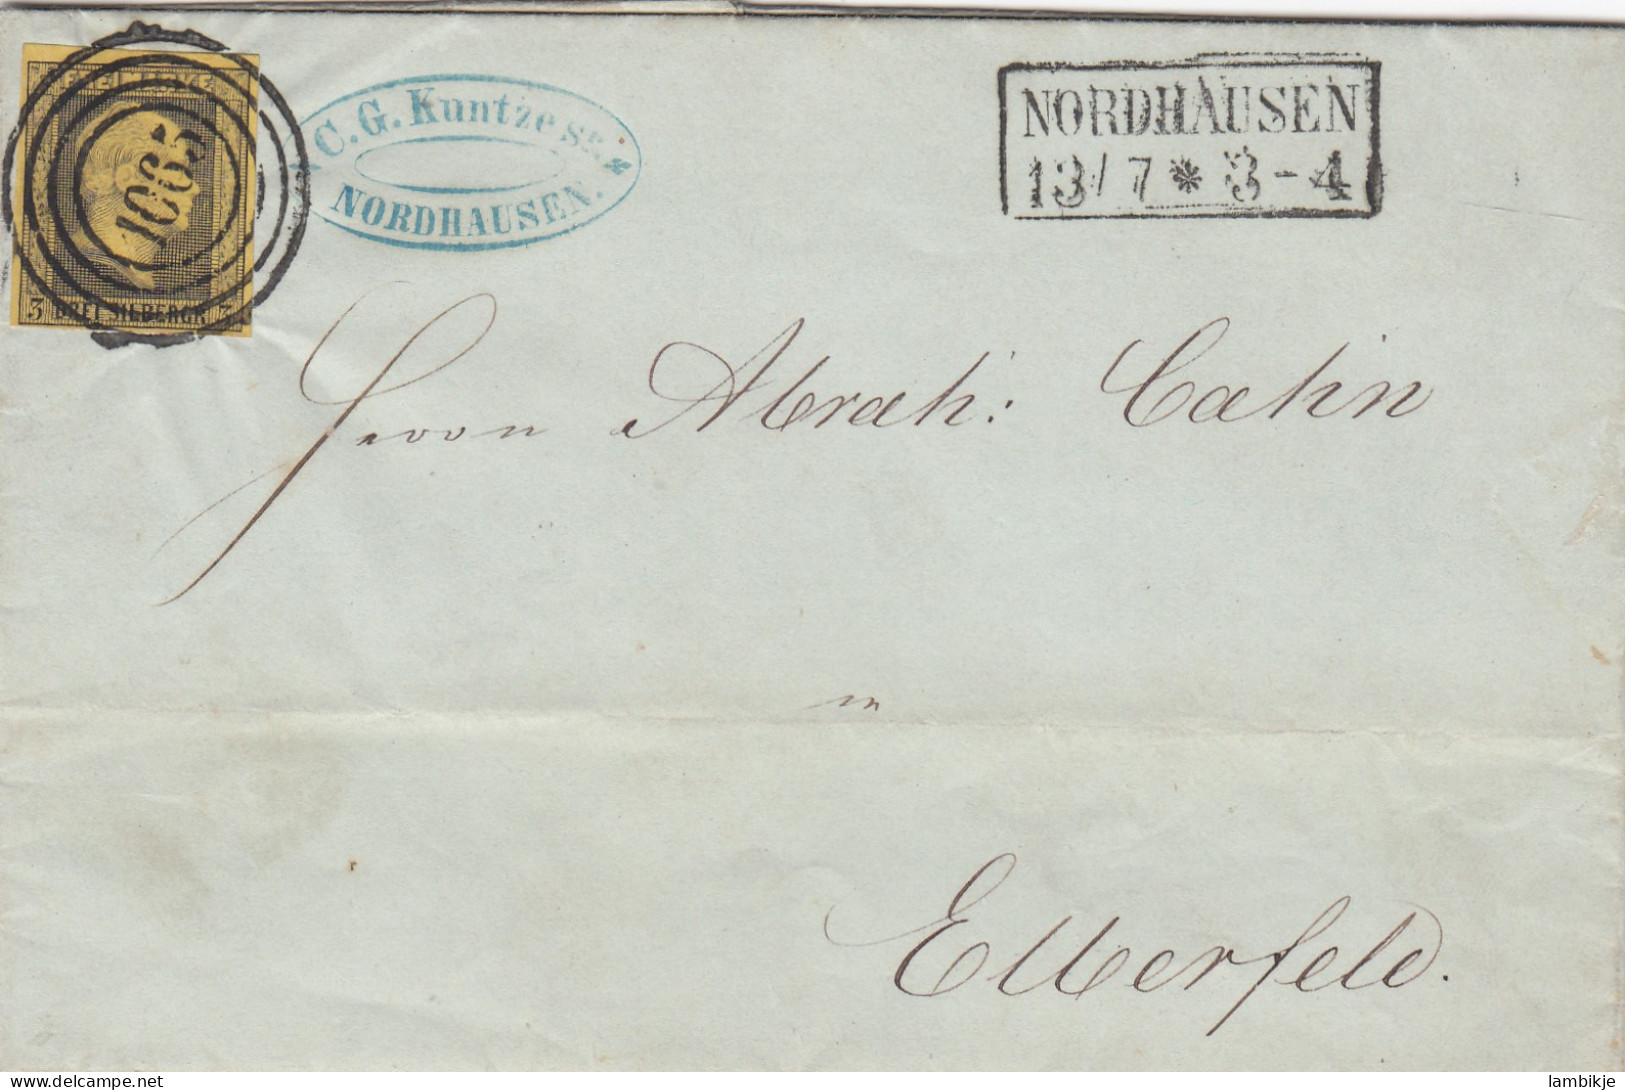 FREIMARKE
1065
3 DREI SILBERGR. 3
C. G. Kuntze sr. *
NORDHAUSEN.
NORDHAUSEN
13/7 * 3-4
Herrn Abrah: Cahn
in
Elberfeld.
delcampe.net
lambikje